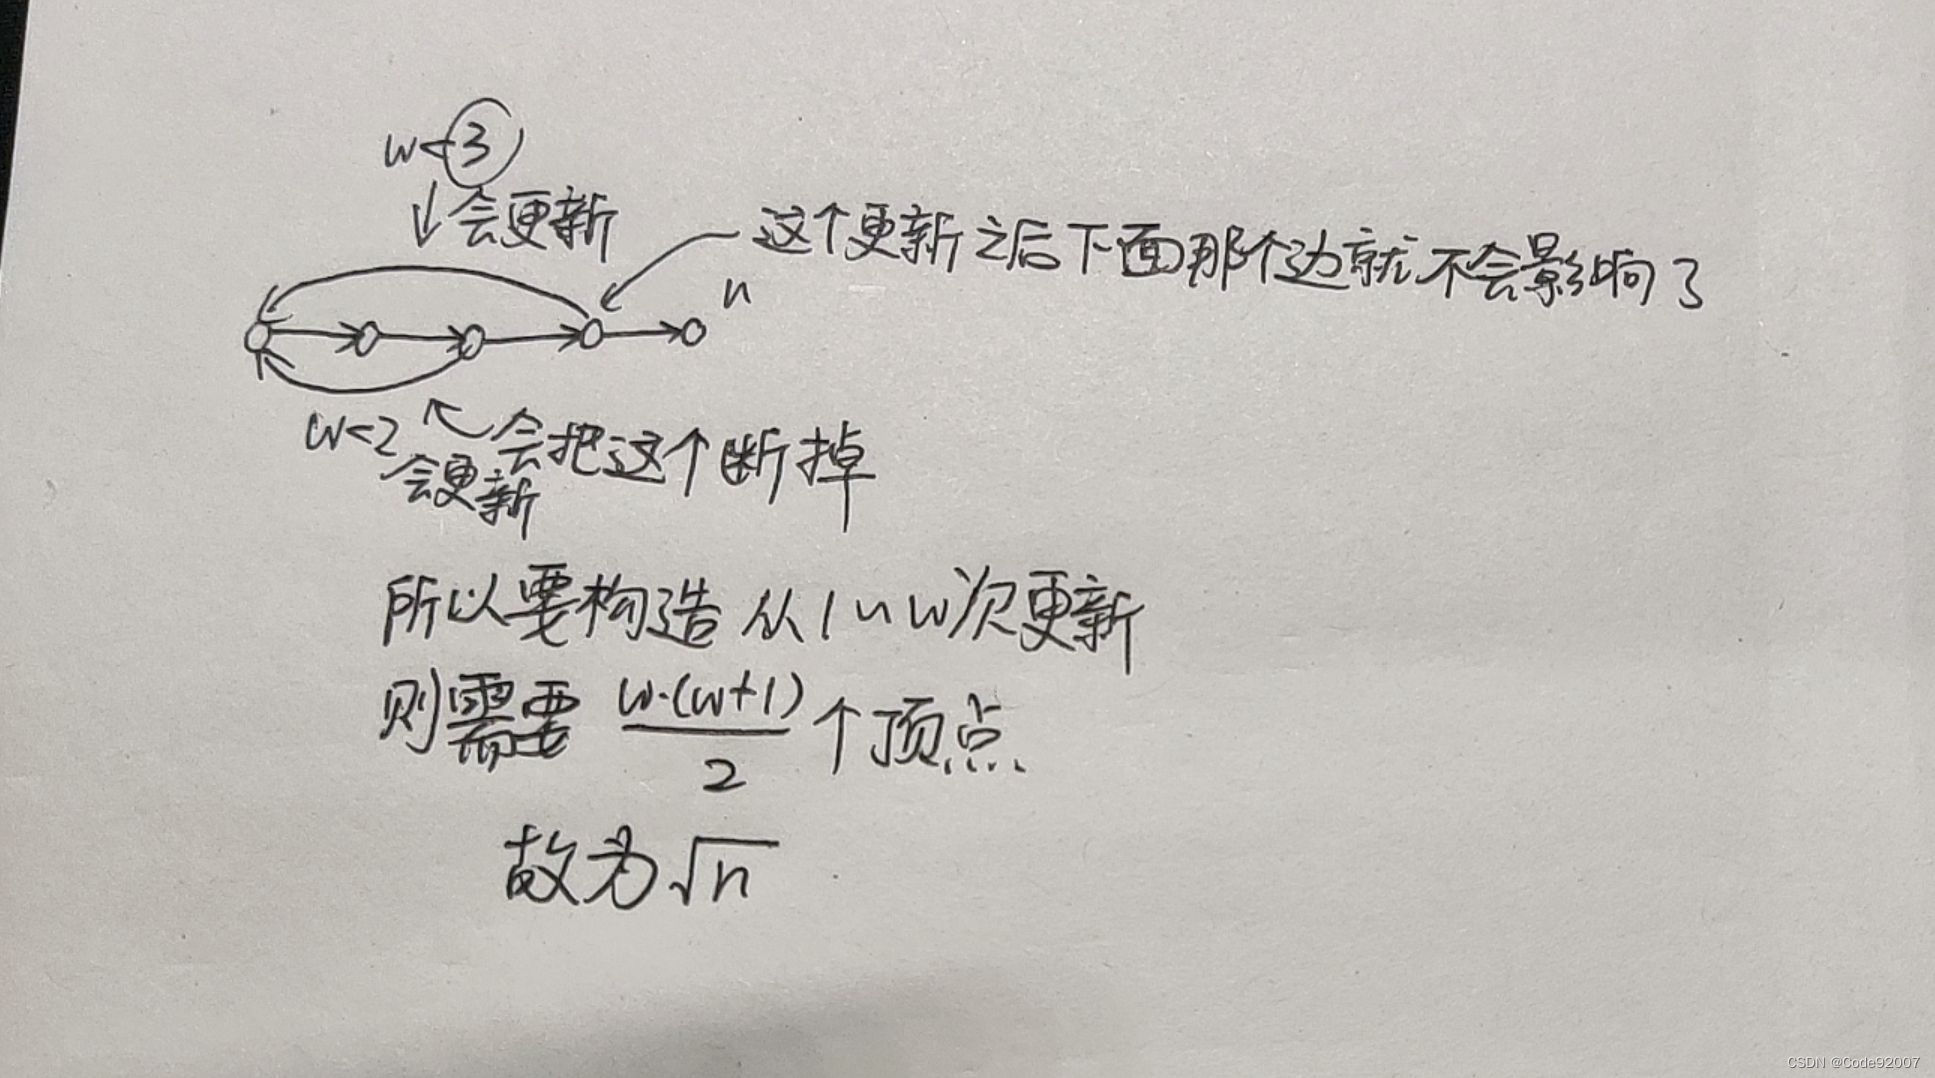 w<3
会更新
这个更新之后下面那个边就不会影响了
n
w<2
会把这个断掉
会更新
所以要构造从1~w次更新
则需要 w·(w+1)/2 个顶点.
故为√n
CSDN @Code92007